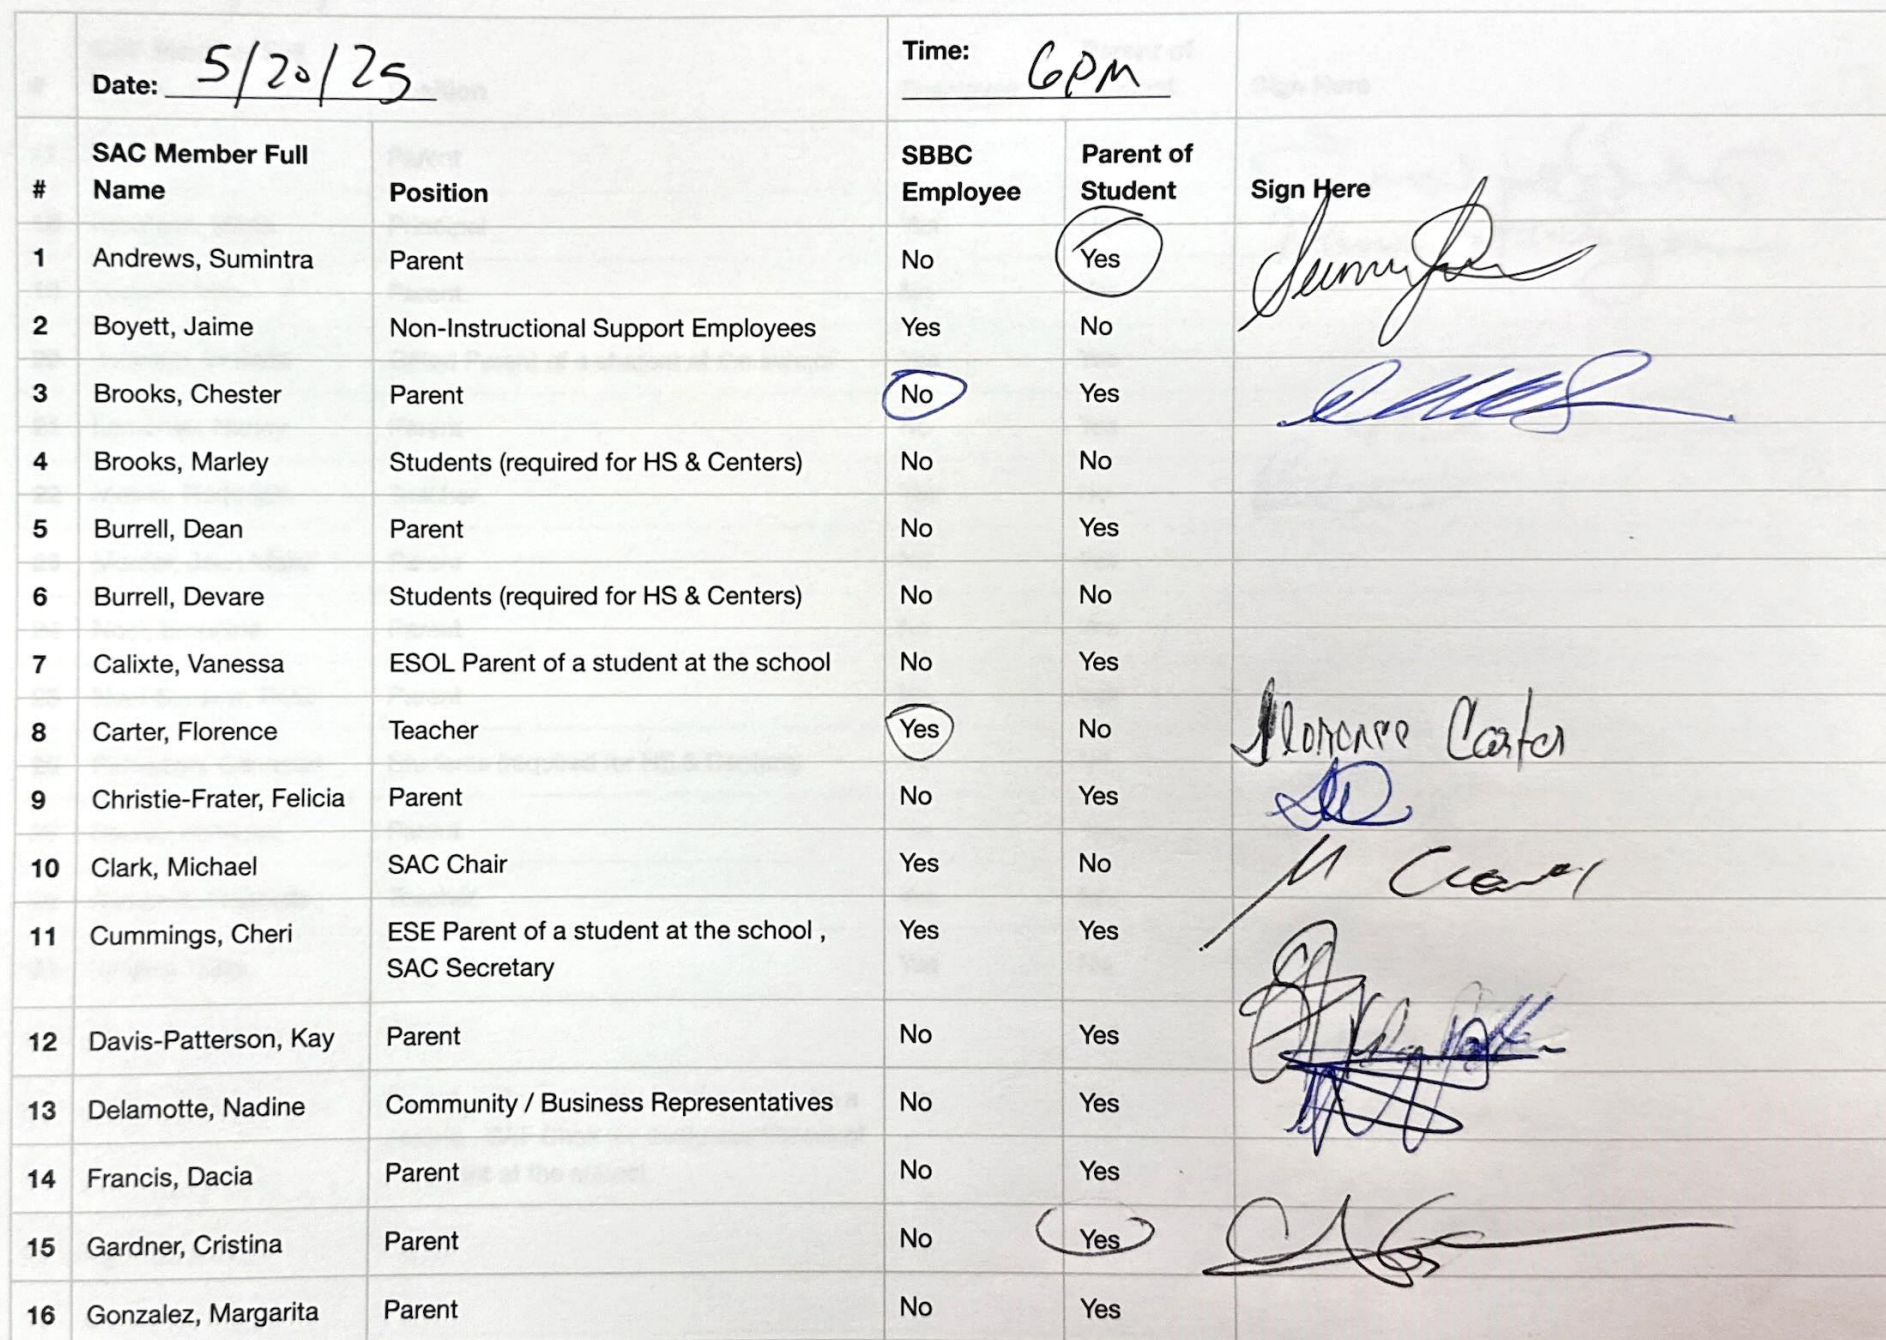 Date: 5/20/25 Time: 6PM
# SAC Member Full Name Position SBBC Employee Parent of Student Sign Here
1 Andrews, Sumintra Parent No Yes
2 Boyett, Jaime Non-Instructional Support Employees Yes No
3 Brooks, Chester Parent No Yes
4 Brooks, Marley Students (required for HS & Centers) No No
5 Burrell, Dean Parent No Yes
6 Burrell, Devare Students (required for HS & Centers) No No
7 Calixte, Vanessa ESOL Parent of a student at the school No Yes
8 Carter, Florence Teacher Yes No Florence Carter
9 Christie-Frater, Felicia Parent No Yes
10 Clark, Michael SAC Chair Yes No M
11 Cummings, Cheri ESE Parent of a student at the school , Yes Yes
SAC Secretary
12 Davis-Patterson, Kay Parent No Yes
13 Delamotte, Nadine Community / Business Representatives No Yes
14 Francis, Dacia Parent No Yes
15 Gardner, Cristina Parent No Yes
16 Gonzalez, Margarita Parent No Yes